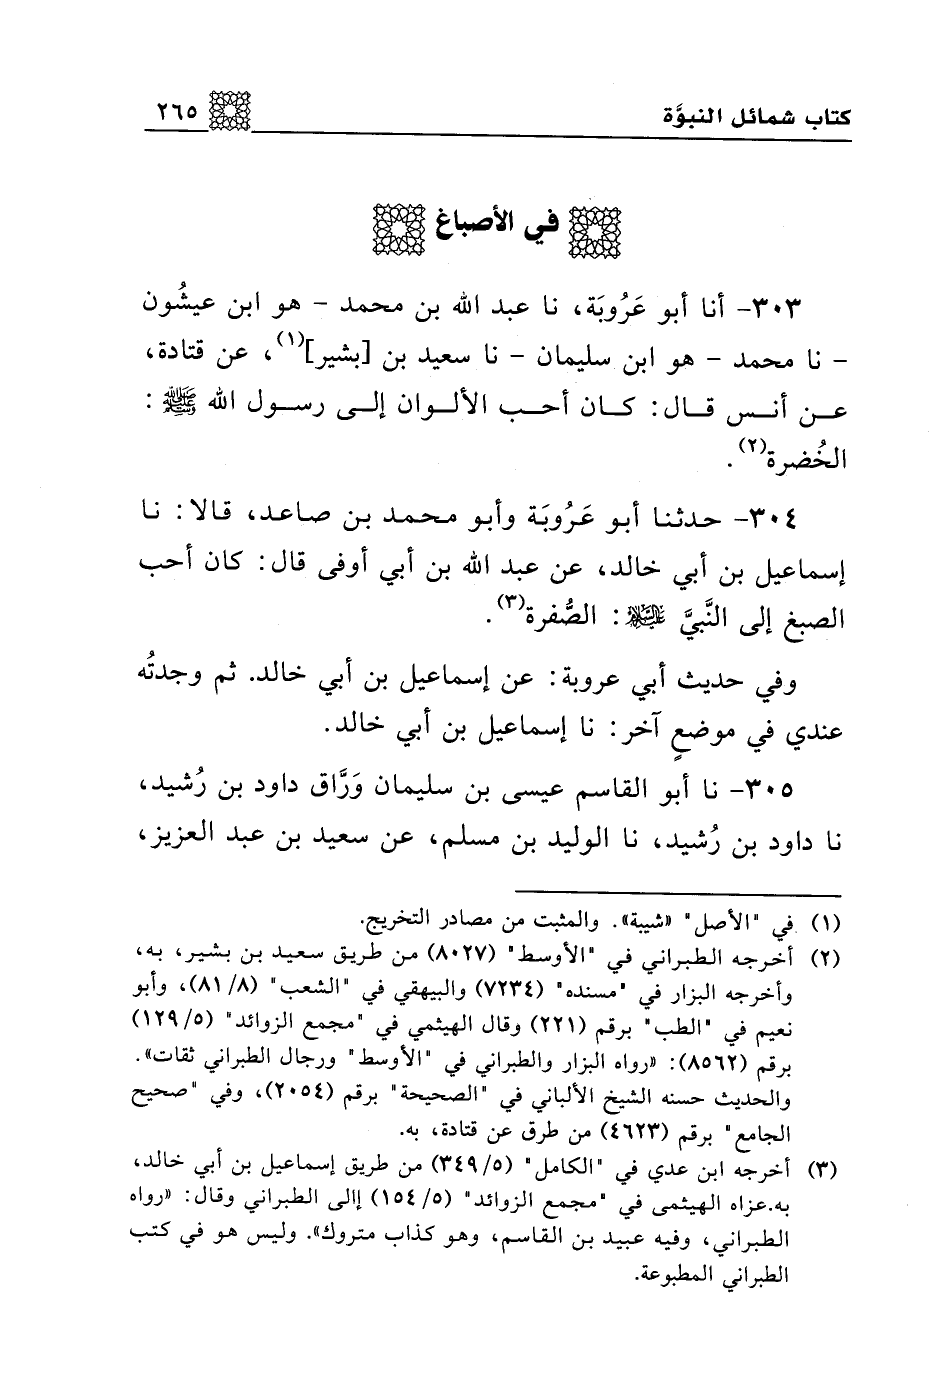 كتاب شمائل النبوَّة ٢٦٥
في الأصباغ
٣٠٣- أنا أبو عَرُوبَة، نا عبد الله بن محمد - هو ابن عيشُون
- نا محمد - هو ابن سليمان - نا سعيد بن [بشير](١)، عن قتادة،
عن أنس قال: كان أحب الألوان إلى رسول الله ﷺ:
الخُضرة(٢).
٣٠٤- حدثنا أبو عَرُوبَة وأبو محمد بن صاعد، قالا: نا
إسماعيل بن أبي خالد، عن عبد الله بن أبي أوفى قال: كان أحب
الصبغ إلى النَّبيَّ عليه السلام: الصُّفرة(٣).
وفي حديث أبي عروبة: عن إسماعيل بن أبي خالد. ثم وجدتُه
عندي في موضعٍ آخر: نا إسماعيل بن أبي خالد.
٣٠٥- نا أبو القاسم عيسى بن سليمان وَرَّاق داود بن رُشيد،
نا داود بن رُشيد، نا الوليد بن مسلم، عن سعيد بن عبد العزيز،
(١) في "الأصل" «شيبة». والمثبت من مصادر التخريج.
(٢) أخرجه الطبراني في "الأوسط" (٨٠٢٧) من طريق سعيد بن بشير، به،
وأخرجه البزار في "مسنده" (٧٢٣٤) والبيهقي في "الشعب" (٨/ ٨١)، وأبو
نعيم في "الطب" برقم (٢٢١) وقال الهيثمي في "مجمع الزوائد" (٥/ ١٢٩)
برقم (٨٥٦٢): «رواه البزار والطبراني في "الأوسط" ورجال الطبراني ثقات».
والحديث حسنه الشيخ الألباني في "الصحيحة" برقم (٢٠٥٤)، وفي "صحيح
الجامع" برقم (٤٦٢٣) من طرق عن قتادة، به.
(٣) أخرجه ابن عدي في "الكامل" (٥/ ٣٤٩) من طريق إسماعيل بن أبي خالد،
به.عزاه الهيثمى في "مجمع الزوائد" (٥/ ١٥٤) إالى الطبراني وقال: «رواه
الطبراني، وفيه عبيد بن القاسم، وهو كذاب متروك». وليس هو في كتب
الطبراني المطبوعة.